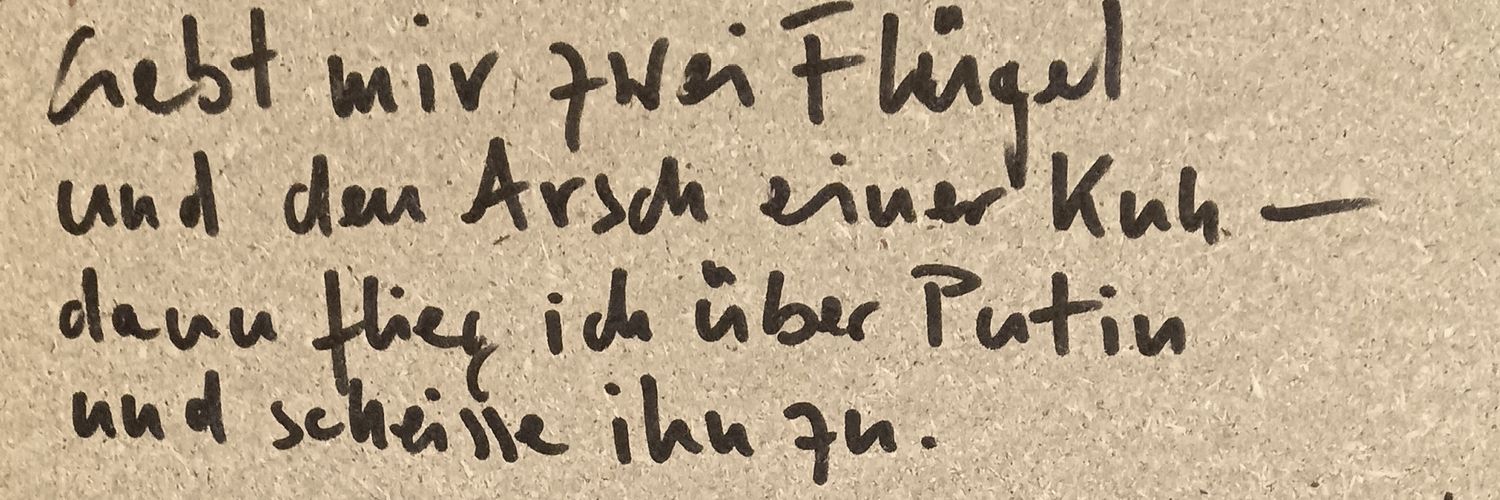 Gebt mir zwei Flügel
und den Arsch einer Kuh –
dann flieg ich über Putin
und scheisse ihn zu.